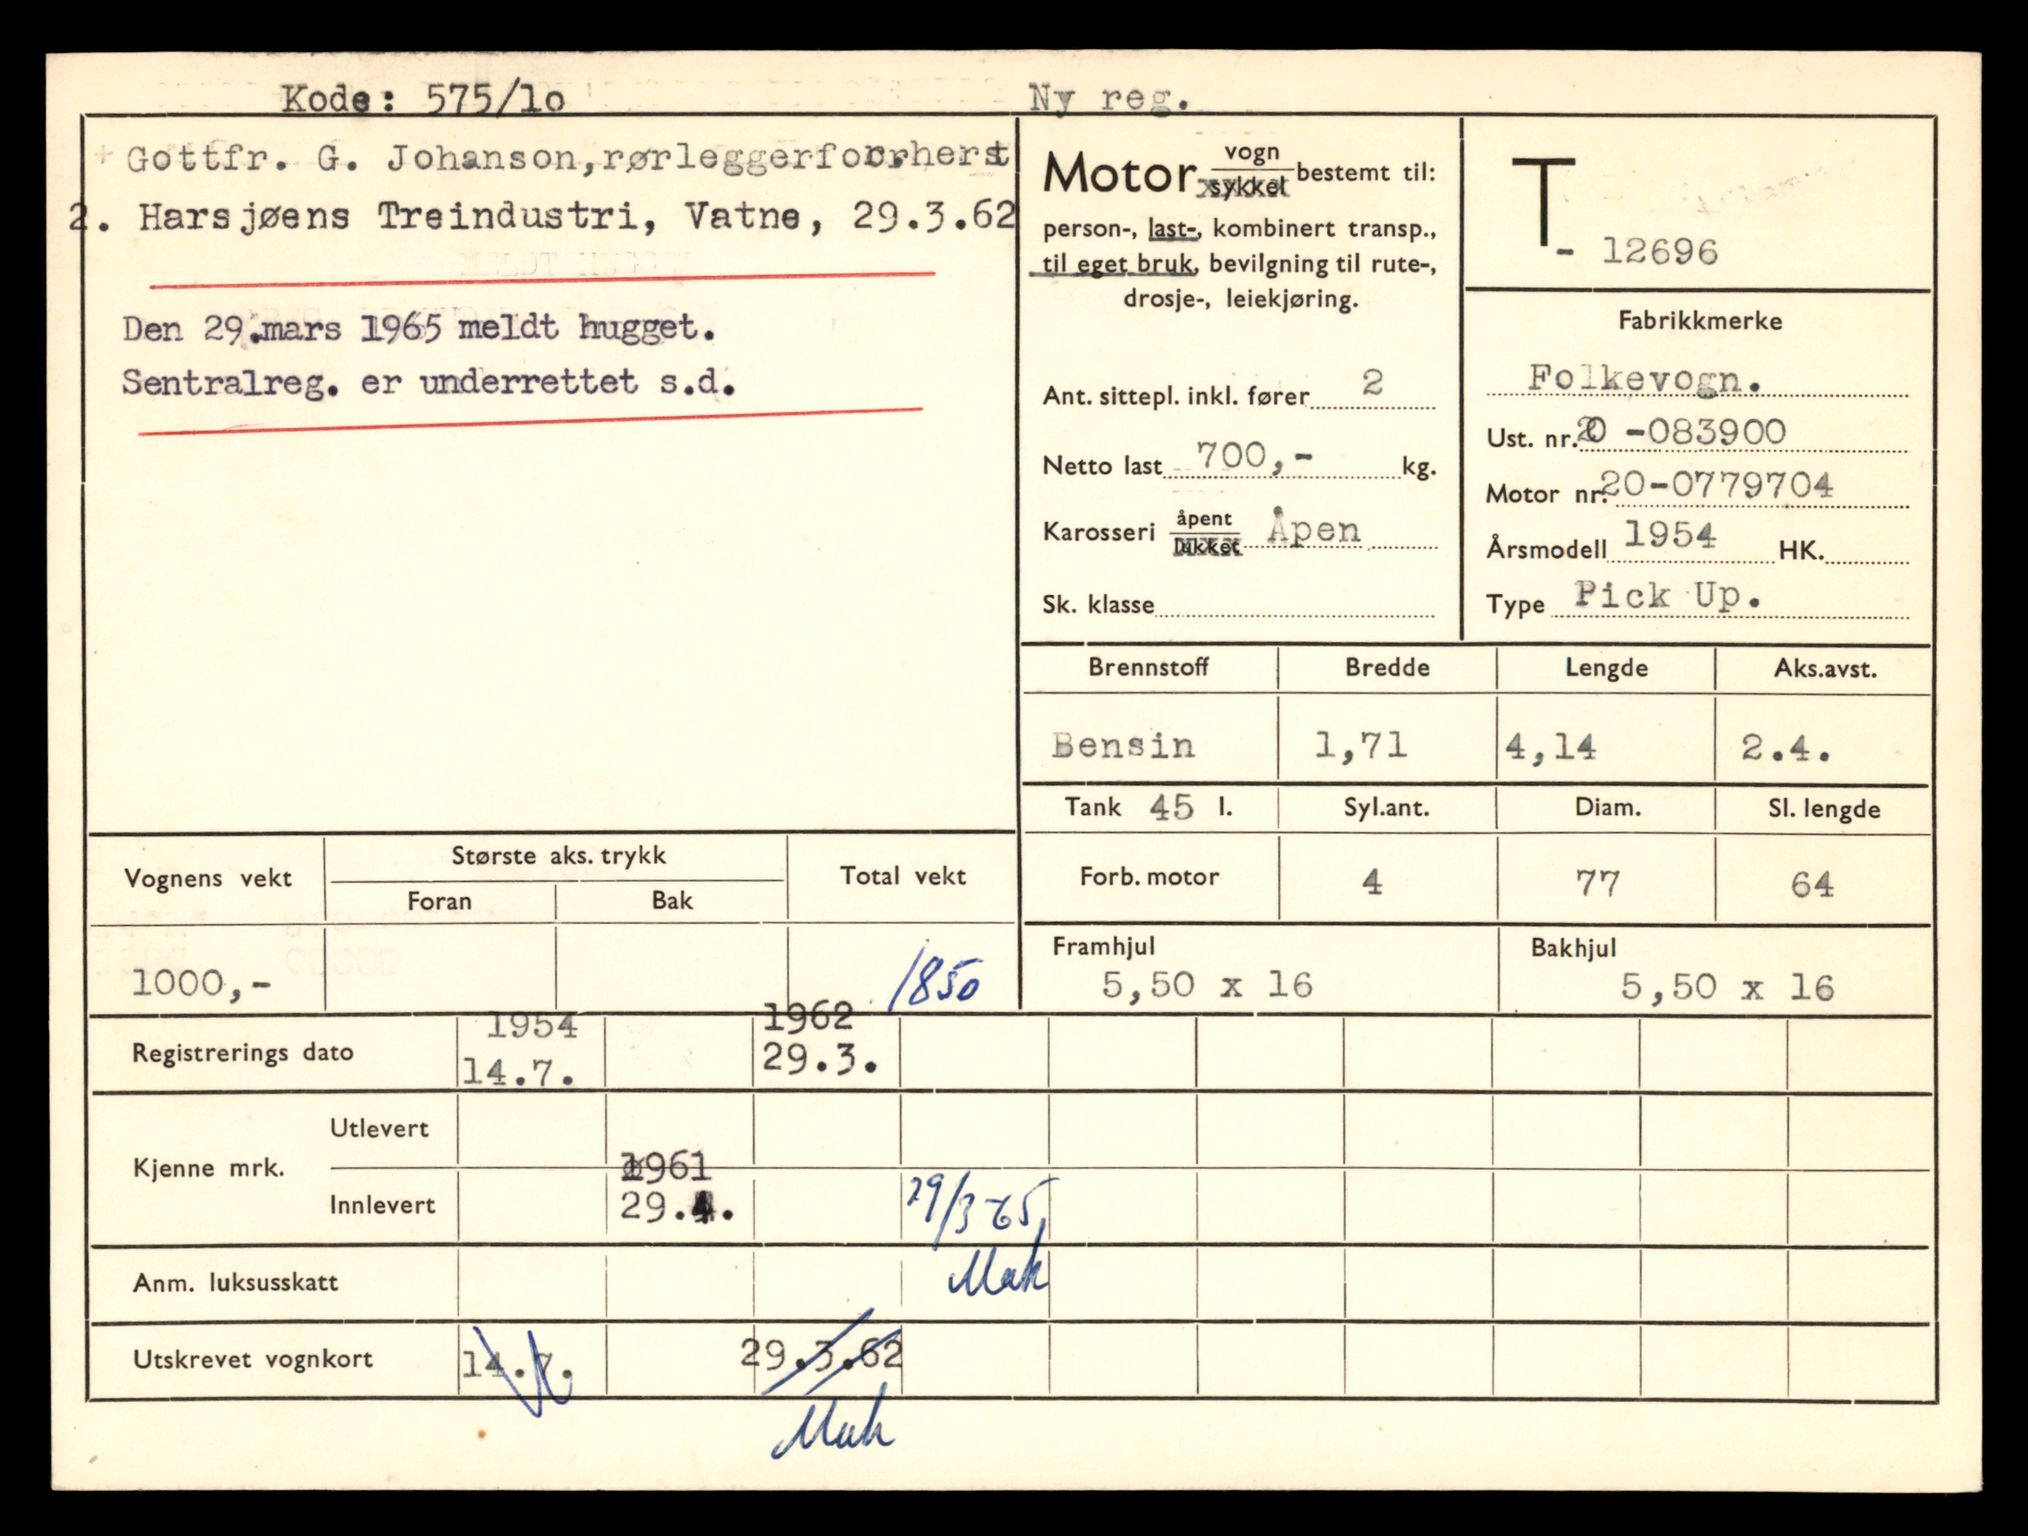 Kode: 575/1o
Ny reg.
Gottfr. G. Johanson, rørleggerforr.
2. Harsjøens Treindustri, Vatne, 29.3.62
Den 29.mars 1965 meldt hugget.
Sentralreg. er underrettet s.d.
Motor vogn sykkel bestemt til:
person-, last-, kombinert transp.,
til eget bruk, bevilgning til rute-,
drosje-, leiekjøring.
Ant. sittepl. inkl. fører 2
Netto last 700,- kg.
Karosseri åpent lukket Åpen
Sk. klasse
T
- 12696
Fabrikkmerke
Folkevogn.
Ust. nr. 20 -083900
Motor nr. 20-0779704
Årsmodell 1954 HK.
Type Pick Up.
Brennstoff Bredde Lengde Aks.avst.
Bensin 1,71 4,14 2.4.
Tank 45 l. Syl.ant. Diam. Sl. lengde
Forb. motor 4 77 64
Framhjul Bakhjul
5,50 x 16 5,50 x 16
Vognens vekt Største aks. trykk Total vekt
Foran Bak
1000,- 1850
1954 1962
Registrerings dato 14.7. 29.3.
Kjenne mrk. Utlevert
1961
Innlevert 29.4. 29/3-65,
Mak
Anm. luksusskatt
Utskrevet vognkort 14.7. 29.3.62
Mak